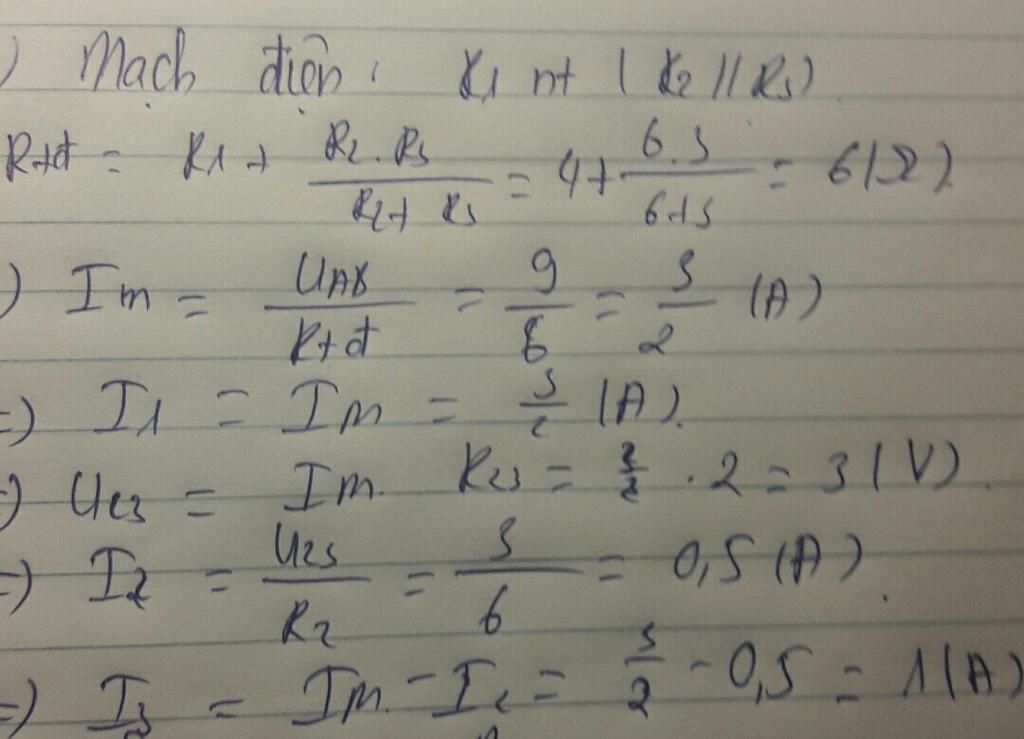 ) Mạch điện: R1 nt (R2 // R3)
Rtđ = R1 + R2.R3/R2+R3 = 4 + 6.3/6+3 = 6(Ω)
) Im = UAB/Rtđ = 9/6 = 3/2 (A)
=) I1 = Im = 3/2 (A).
=) U23 = Im. R23 = 3/2 . 2 = 3 (V).
=) I2 = U23/R2 = 3/6 = 0,5 (A).
=) I3 = Im - I2 = 3/2 - 0,5 = 1 (A)